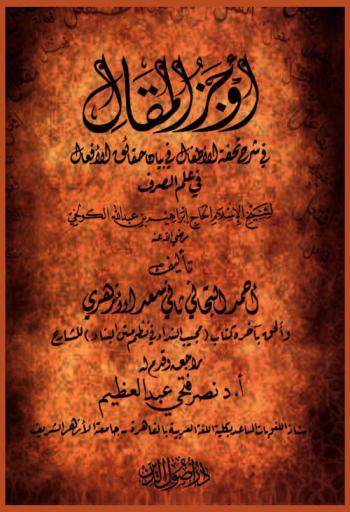 أوجز المقال
في شرح تحفة الأطفال في بيان حقائق الأفعال
في علم الصرف
لشيخ الإسلام الحاج إبراهيم بن عبدالله الكولخي
رضي الله عنه
تأليف
أحمد التجاني ثاني سعد
وألحق بآخره كتاب (مجيب النداء في نظم متن البناء) للشارح
راجعه وقدم له
أ.د نصر فتحي عبدالعظيم
أستاذ اللغويات المساعد بكلية اللغة العربية بالقاهرة - جامعة الأزهر الشريف
دار أصول الدين